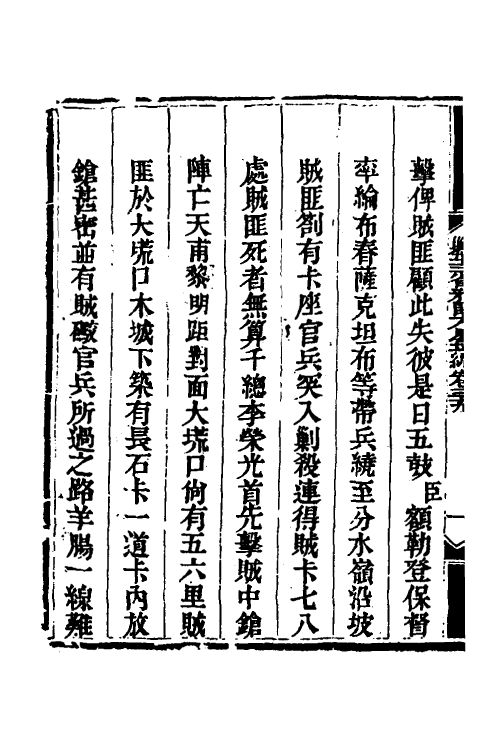 擊俾賊匪顧此失彼是日五鼓臣額勒登保督
率綸布春薩克坦布等帶兵繞至分水嶺沿坡
賊匪劄有卡座官兵突入剿殺連得賊卡七八
處賊匪死者無算千總李榮光首先擊賊中鎗
陣亡天甫黎明距對面大塃口尙有五六里賊
匪於大塃口木城下築有長石卡一道卡內放
鎗甚密並有賊礮官兵所過之路羊腸一線難